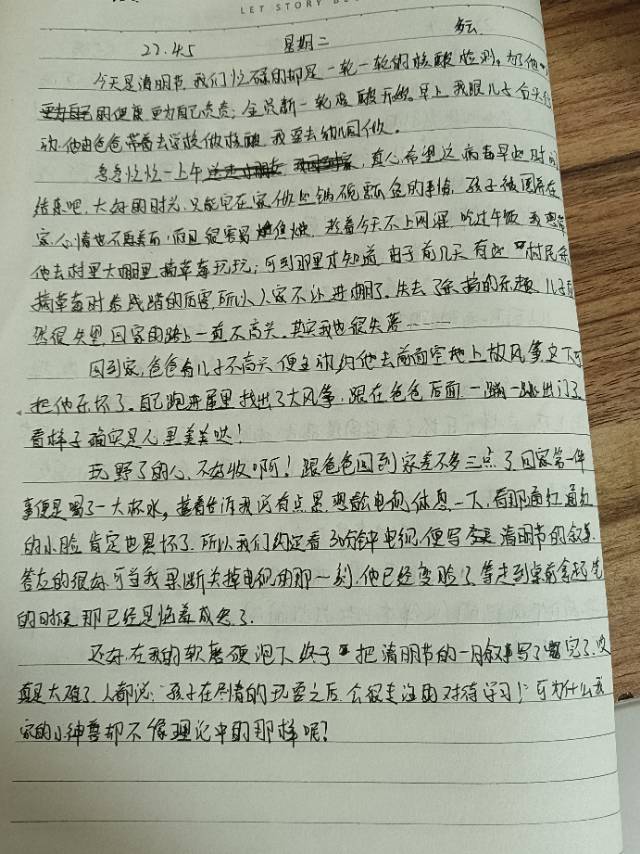 LET STORY
22.4.5 星期二
今天是清明节,我们忙碌的却是一轮一轮的核酸检测。为了他人
更为自己的健康,更为自己负责;全员新一轮核酸开始。早上我跟儿子白天行
动,他由爸爸带着去学校做核酸,我要去幼儿园做。
匆匆忙忙一上午 真人希望这病毒早些时间
结束吧,大好的时光,只能宅在家做些锅碗瓢盆的事情,孩子被困在
家,心情也不再美丽,而且很容易烦燥,趁着今天不上网课,吃过午饭
他去村里大棚里摘草莓玩玩;可到那里才知道,由于前几天有些村民来
摘草莓时有践踏的厉害,所以人家不让进棚了。失去了采摘的乐趣,儿子
然很失望,回家的路上一直不高兴,其实我也很失落……
回到家,爸爸看儿子不高兴,便主动约他去前面空地上放风筝,这下可
把他乐坏了。自己跑进屋里找出了大风筝,跟在爸爸后面,一蹦一跳出门了,
看样子确实是心里美美哒!
玩野了的心,不好收啊!跟爸爸回到家差不多三点了,回家第一件
事便是喝了一大杯水,接着告诉我说有点累,想看电视休息一下,看那通红通红
的小脸,肯定也累坏了,所以我们约定看30分钟电视,便写清明节的叙事,
答应的很好,可当我果断关掉电视的那一刻,他已经变脸了,等走到桌前拿起笔
的时候,那已经是
还好在我的软磨硬泡下,终于把清明节的一月叙事写了完了,
真是太难了,人都说:"孩子在尽情的玩耍之后,会很专注的对待学习!"可为什么我
家的小神兽却不像理论中的那样呢?